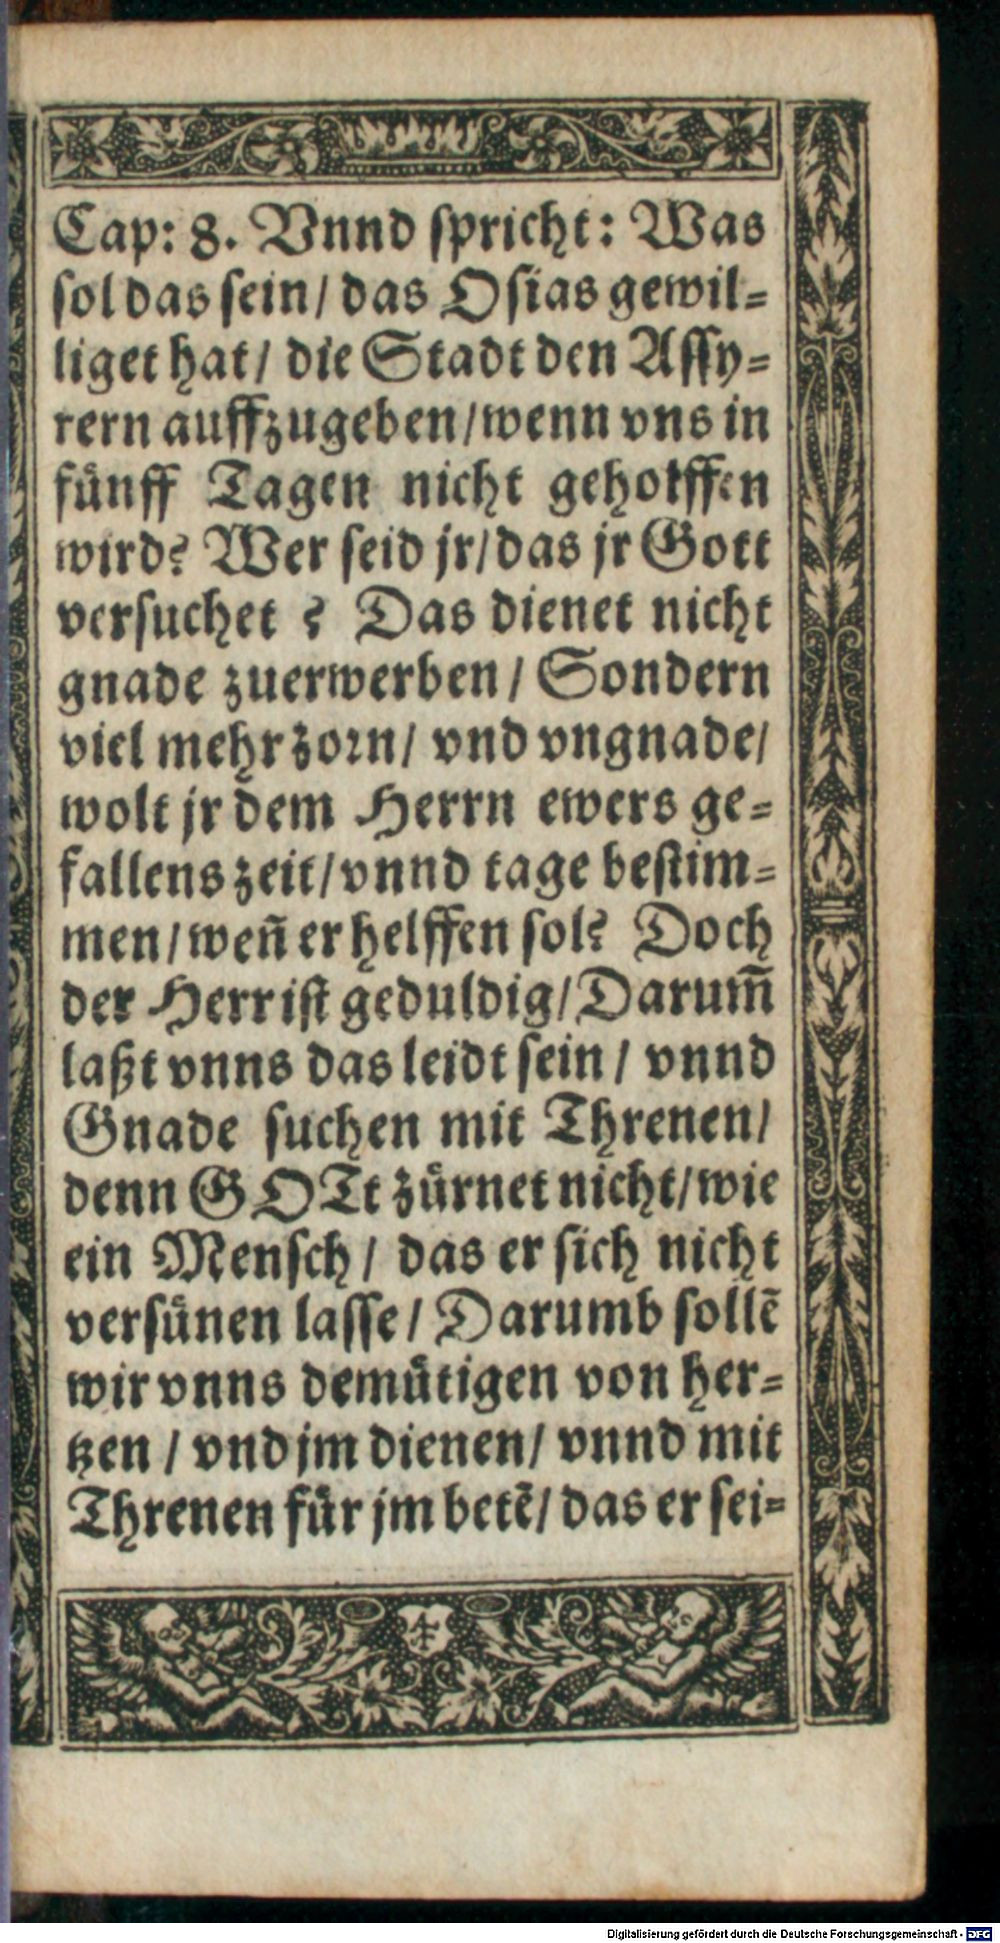 Cap: 8. Vnnd ſpricht: Was
ſol das ſein / das Oſias gewil⸗
liget hat / die Stadt den Aſſy⸗
rern auffzugeben / wenn vns in
fuͤnff Tagen nicht geholffen
wird? Wer ſeid jr / das jr Gott
verſuchet ? Das dienet nicht
gnade zuerwerben / Sondern
viel mehr zorn / vnd vngnade /
wolt jr dem Herrn ewers ge⸗
fallens zeit / vnnd tage beſtim⸗
men / weñ er helffen ſol? Doch
der Herr iſt geduldig / Darum̃
laßt vnns das leidt ſein / vnnd
Gnade ſuchen mit Threnen /
denn GOTt zuͤrnet nicht / wie
ein Menſch / das er ſich nicht
verſuͤnen laſſe / Darumb ſollẽ
wir vnns demuͤtigen von her⸗
tzen / vnd jm dienen / vnnd mit
Threnen fuͤr jm betẽ / das er ſei⸗
Digitalisierung gefördert durch die Deutsche Forschungsgemeinschaft - DFG